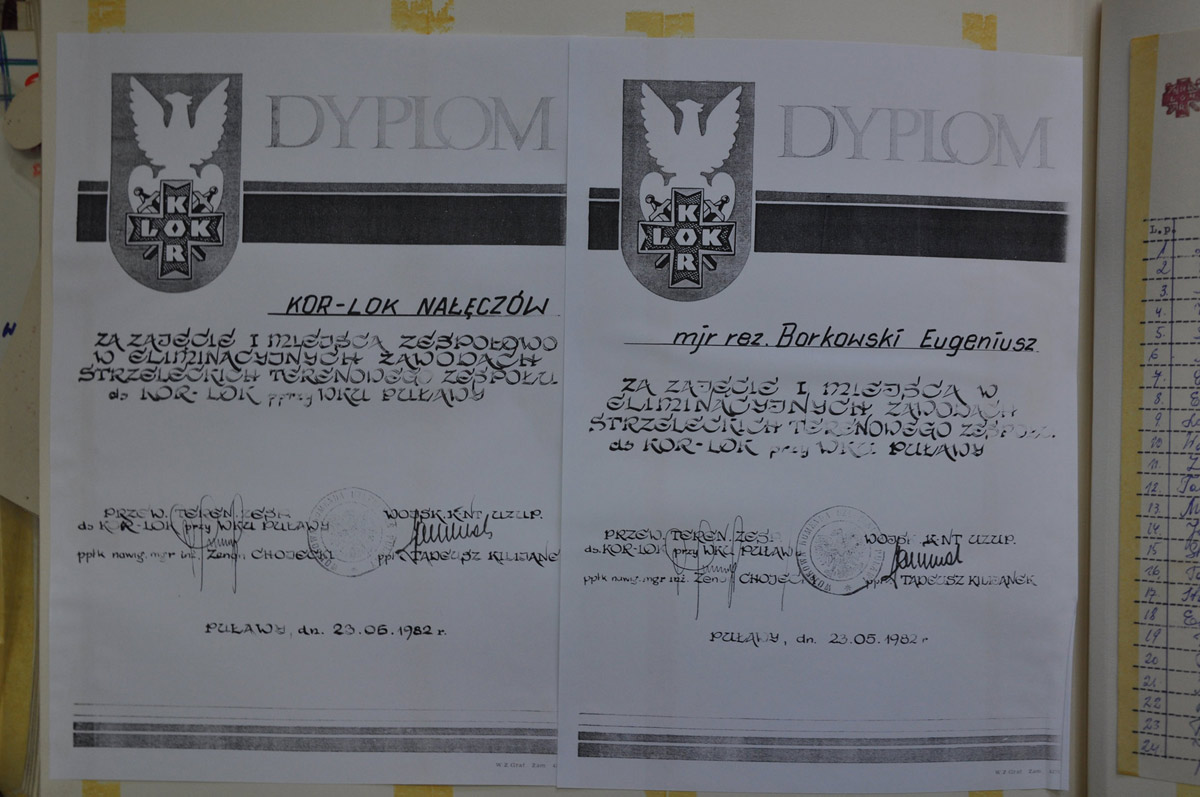 DYPLOM
K
LOK
R
KOR-LOK NAŁĘCZÓW
ZA ZAJĘCIE I MIEJSCA ZESPOŁOWO
W ELIMINACYJNYCH ZAWODACH
STRZELECKICH TERENOWEGO ZESPOŁU
ds KOR-LOK przy WKU PUŁAWY
PRZEW. TEREN. ZESP.
ds KOR-LOK przy WKU PUŁAWY
ppłk nawig. mgr inż. Zenon CHOJECKI
WOJSK. KNT UZUP.
TADEUSZ KILIJANE
PUŁAWY, dn. 23.05.1982 r.
DYPLOM
K
LOK
R
mjr rez. Borkowski Eugeniusz
ZA ZAJĘCIE I MIEJSCA W
ELIMINACYJNYCH ZAWODACH
STRZELECKICH TERENOWEGO ZESPOŁU
ds KOR-LOK przy WKU PUŁAWY
PRZEW. TEREN. ZESP.
ds. KOR-LOK przy WKU PUŁAW
ppłk nawig. mgr inż. Zenon CHOJEC
WOJSK KNT UZUP.
TADEUSZ KILIJANEK
PUŁAWY, dn. 23.05.1982 r
L.p.
1
2
3.
4.
5.
6.
7.
8
9.
10
11.
12.
13.
14.
15
16.
17.
18
19
20
21.
22
23
24.